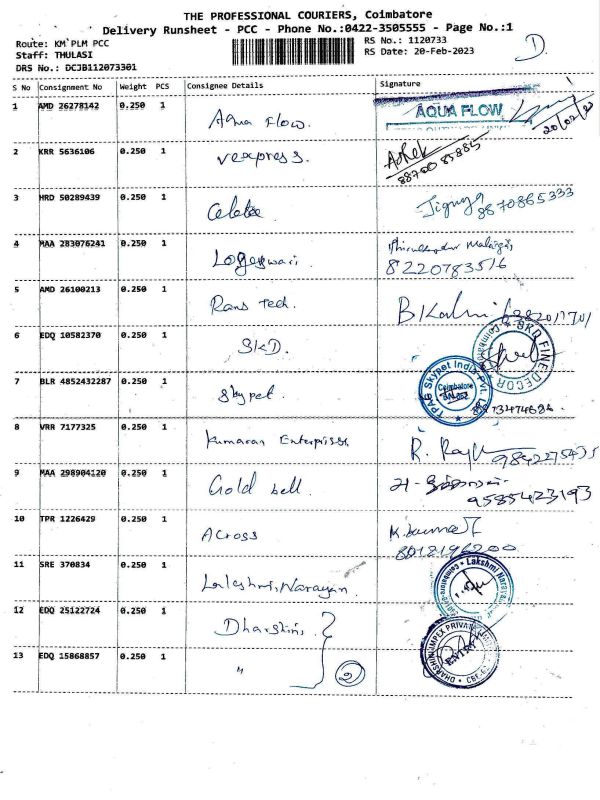 THE PROFESSIONAL COURIERS, Coimbatore
Delivery Runsheet - PCC - Phone No.:0422-3505555 - Page No.:1
Route: KM PLM PCC
RS No.: 1120733
Staff: THULASI
RS Date: 20-Feb-2023
DRS No.: DCJB112073301
D.
S No Consignment No Weight PCS Consignee Details Signature
1 AMD 26278142 0.250 1 Aqua Flow. AQUA FLOW
20/02/23
2 KRR 5636106 0.250 1 vexpress. Ashok
8870085885
3 HRD 50289439 0.250 1
8870865333
4 MAA 283076241 0.250 1 Logeswari.
8220783516
5 AMD 26100213 0.250 1 Rans Tech.
6 EDQ 10582370 0.250 1 SKD. SKD FINE DECOR
7 BLR 4852432287 0.250 1 Skypet. Skypet India Pvt.
Coimbatore
8 VRR 7177325 0.250 1 Kumaran Enterprises
9842275435
9 MAA 298904120 0.250 1 Gold bell.
9585423193
10 TPR 1226429 0.250 1 Across
11 SRE 370834 0.250 1 Lakshmi Narayan
12 EDQ 25122724 0.250 1 Dharshini
13 EDQ 15868857 0.250 1 " 2